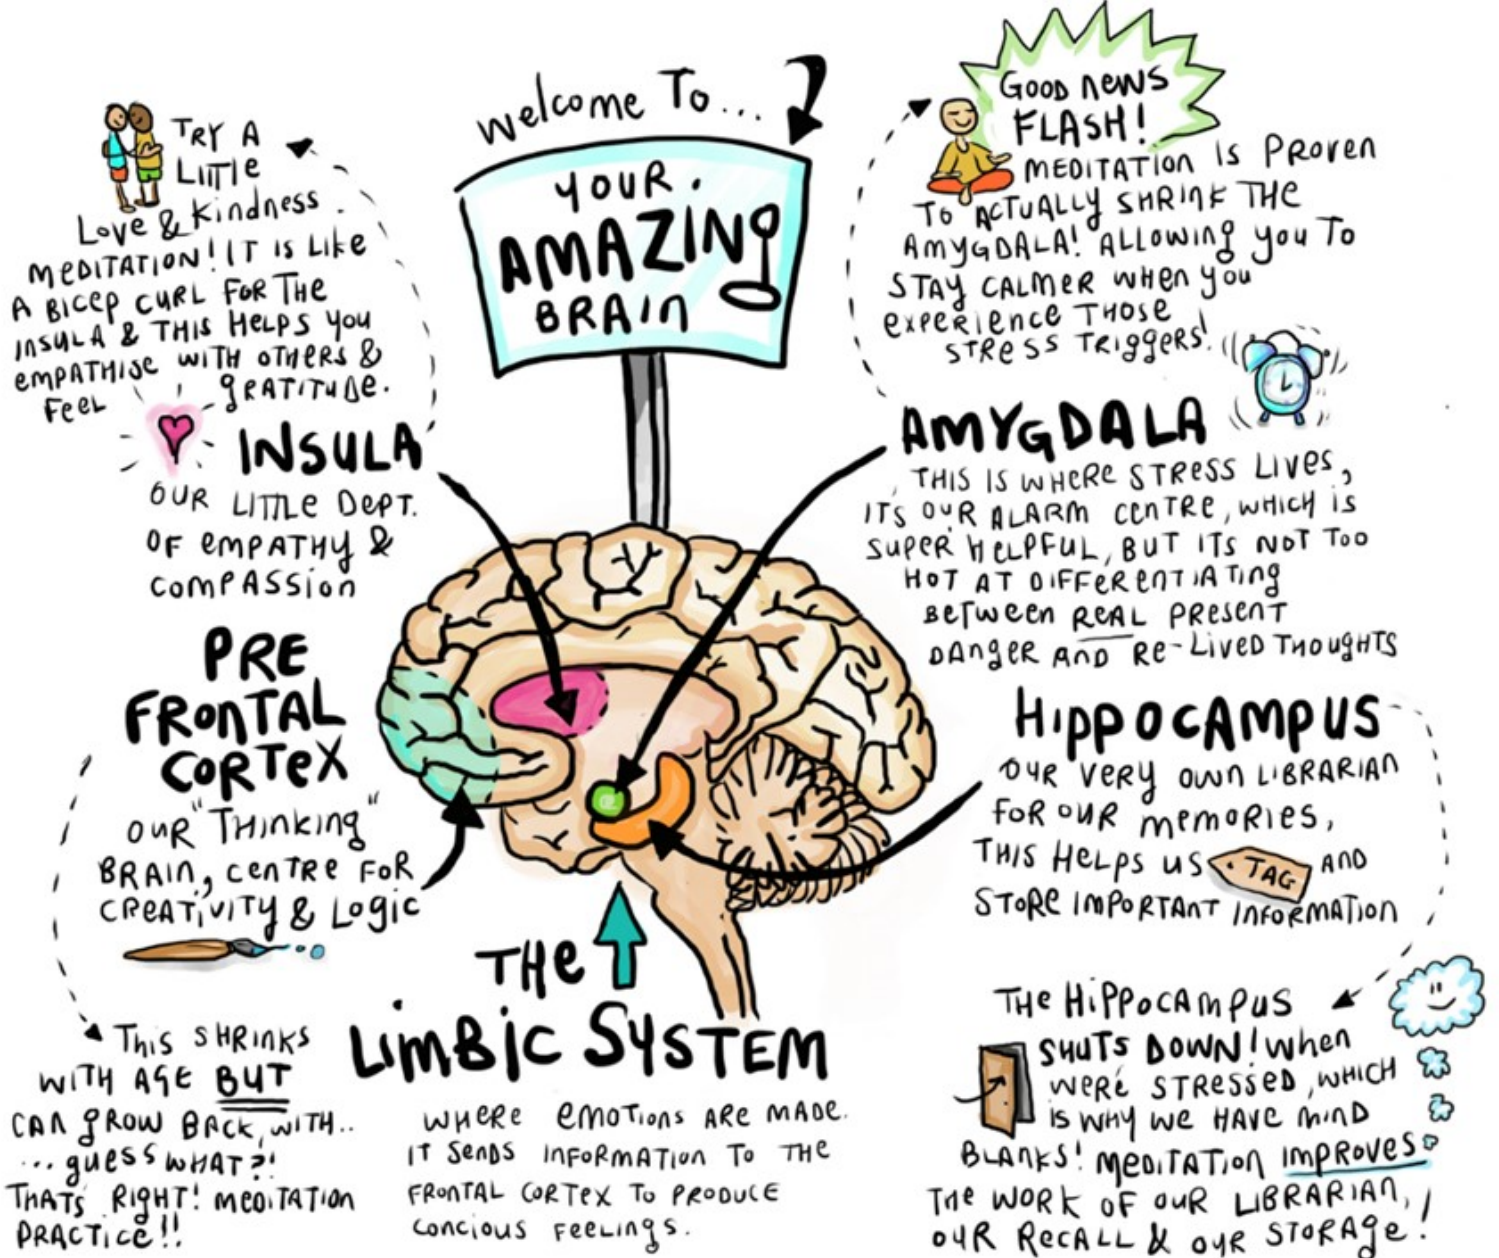 welcome To...
YOUR
AMAZING
BRAIN
TRY A
LITTLE
Love & Kindness
MEDITATION! IT IS LIKE
A BICEP CURL FOR THE
INSULA & THIS HELPS YOU
EMPATHISE WITH OTHERS &
FEEL GRATITUDE.
INSULA
OUR LITTLE DEPT.
OF EMPATHY &
COMPASSION
PRE
FRONTAL
CORTEX
OUR "THINKING"
BRAIN, CENTRE FOR
CREATIVITY & LOGIC
THIS SHRINKS
WITH AGE BUT
CAN GROW BACK, WITH..
... GUESS WHAT?!
THATS RIGHT! MEDITATION
PRACTICE!!
THE
LIMBIC SYSTEM
WHERE EMOTIONS ARE MADE.
IT SENDS INFORMATION TO THE
FRONTAL CORTEX TO PRODUCE
CONCIOUS FEELINGS.
GOOD NEWS
FLASH!
MEDITATION IS PROVEN
TO ACTUALLY SHRINK THE
AMYGDALA! ALLOWING YOU TO
STAY CALMER WHEN YOU
EXPERIENCE THOSE
STRESS TRIGGERS!
AMYGDALA
THIS IS WHERE STRESS LIVES,
ITS OUR ALARM CENTRE, WHICH IS
SUPER HELPFUL, BUT ITS NOT TOO
HOT AT DIFFERENTIATING
BETWEEN REAL PRESENT
DANGER AND RE-LIVED THOUGHTS
HIPPOCAMPUS
OUR VERY OWN LIBRARIAN
FOR OUR MEMORIES,
THIS HELPS US TAG AND
STORE IMPORTANT INFORMATION
THE HIPPOCAMPUS
SHUTS DOWN! WHEN
WERE STRESSED, WHICH
IS WHY WE HAVE MIND
BLANKS! MEDITATION IMPROVES
THE WORK OF OUR LIBRARIAN,
OUR RECALL & OUR STORAGE!